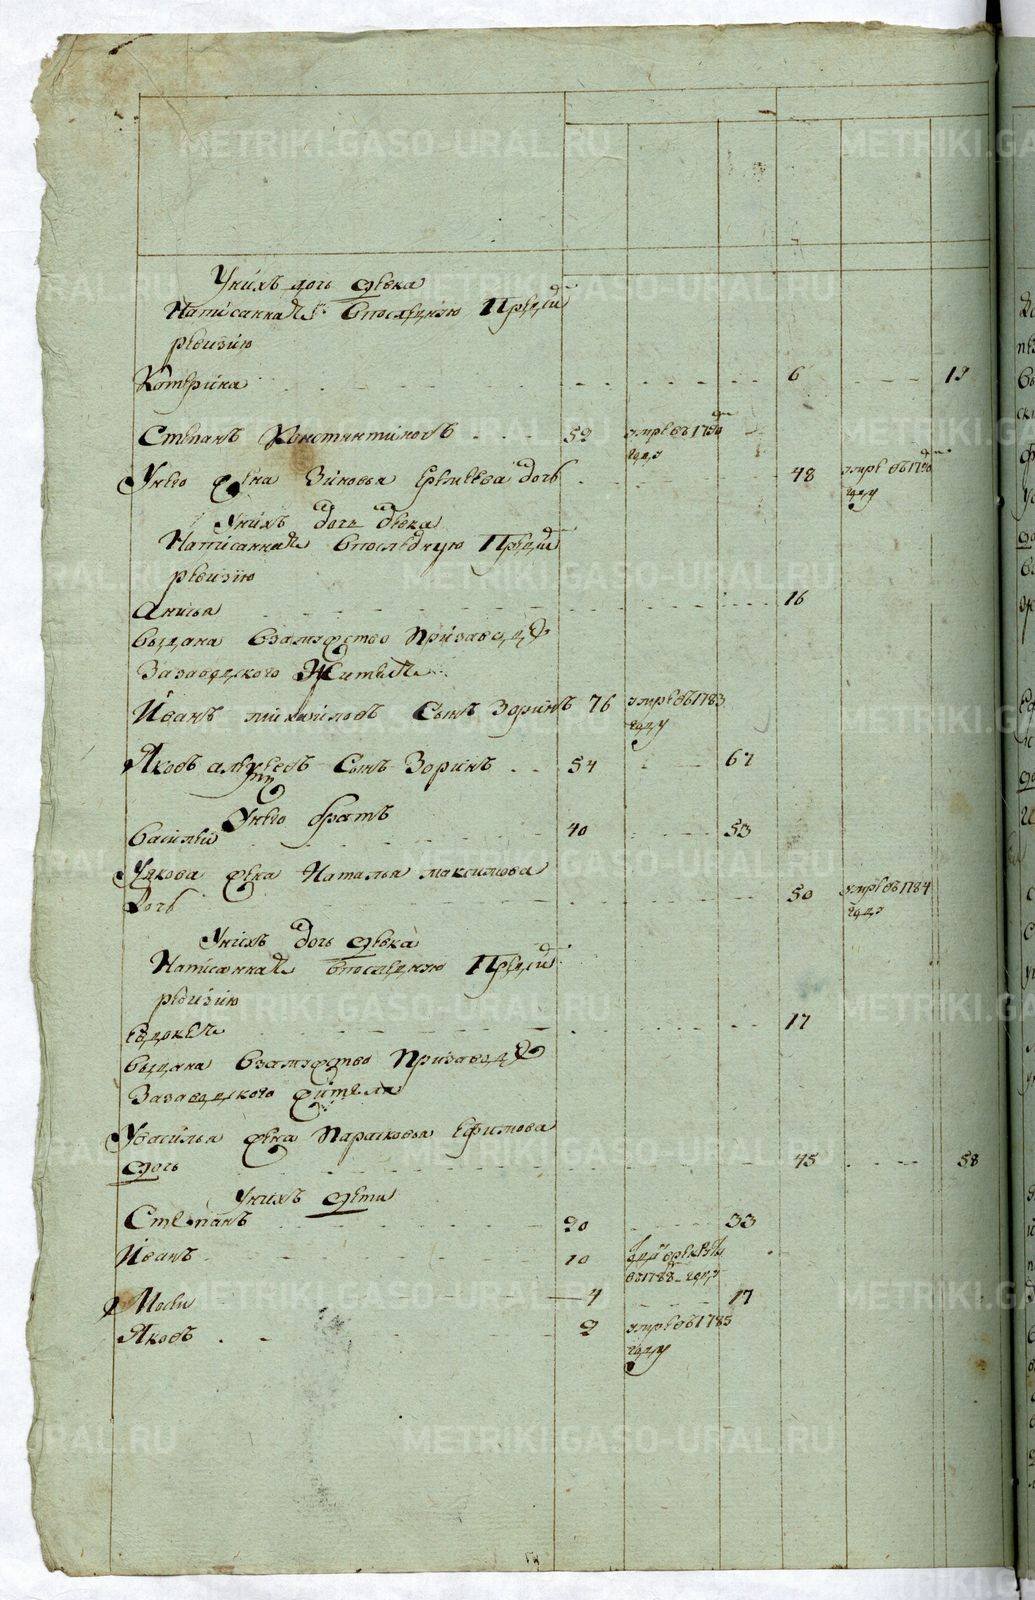 У них дочь девка
Написанная в последнюю пред сим
ревизию
Катерина 6 19
Степан Константинов 59 умре в 1790м
году
У него жена Зиновья Ермиева дочь 48 умре в 1790м
году
У них дочь девка
Написанная в последнюю пред сим
ревизию
Анисья 16
выдана в замужство при заводе
за заводского жителя
Иван Михайлов сын Зорин 76 умре в 1783
году
Яков сын Зорин 54 67
У него брат
Василей 40 53
У Якова жена Наталья Максимова
дочь 50 умре в 1784
году
У них дочь девка
Написанная в последнюю пред сим
ревизию
Евдокея 17
выдана в замужство при заводе
за заводского жителя
У Василья жена Парасковья Ефимова
дочь 45 58
У них дети
Степан 20 33
Иван 10
в 1788 году
Мосей 4 17
Яков 2 умре в 1785
году
METRIKI.GASO-URAL.RU